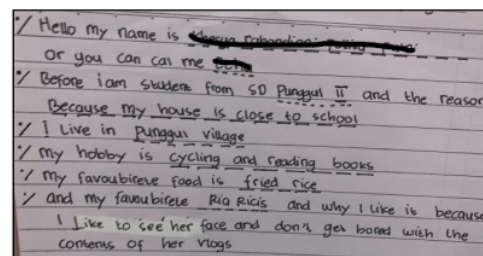 Hello my name is
or you can cal me
Before iam student from SD Punggul II and the reason
Because my house is close to school
I Live in punggul village
my hobby is cycling and reading books
my favoubirete food is fried rice
and my favoubirete Ria Ricis and why I like is because
I Like to see her face and don't get bored with the
contents of her vlogs